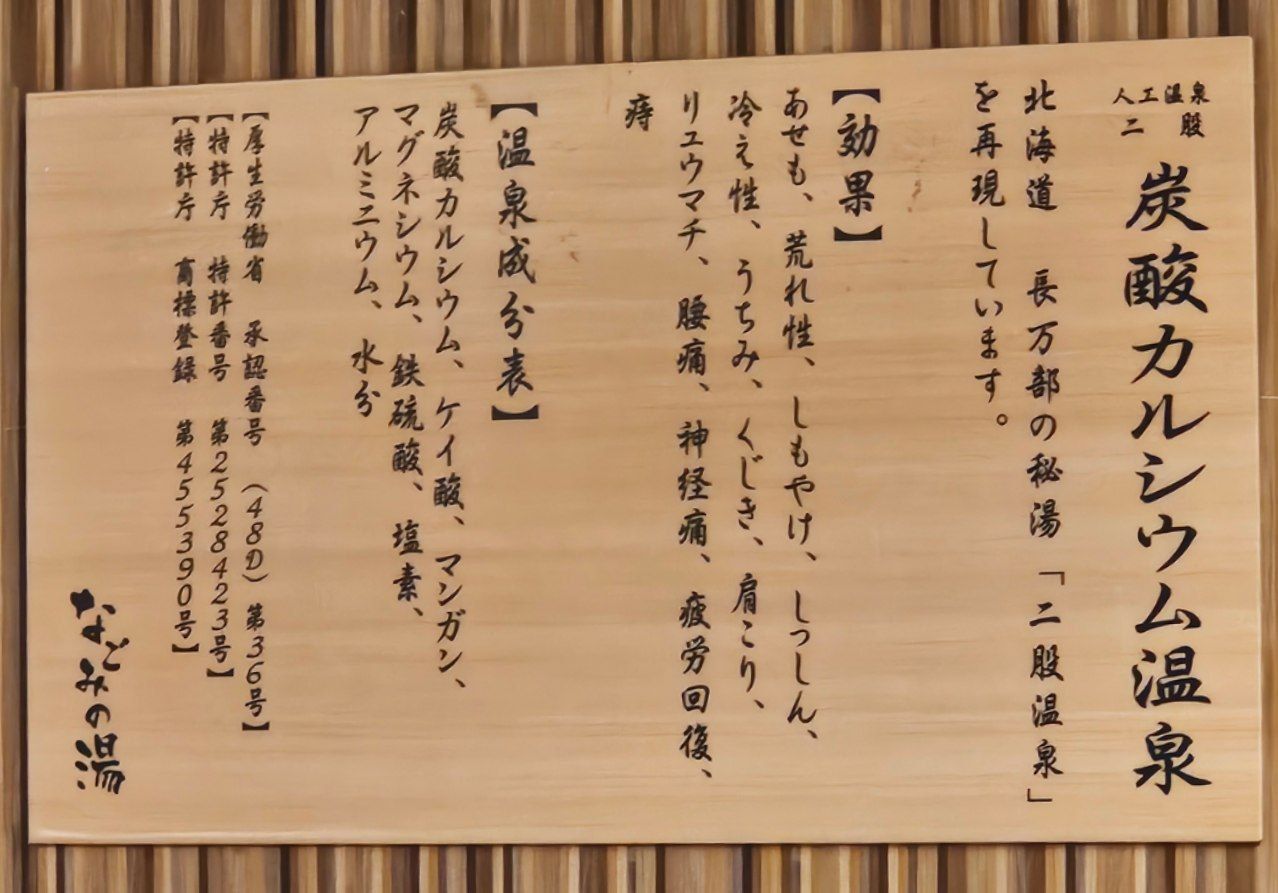 人工温泉
二股
炭酸カルシウム温泉
北海道 長万部の秘湯「二股温泉」
を再現しています。
【効果】
あせも、荒れ性、しもやけ、しっしん、
冷え性、うちみ、くじき、肩こり、
リュウマチ、腰痛、神経痛、疲労回復、
痔
【温泉成分表】
炭酸カルシウム、ケイ酸、マンガン、
マグネシウム、鉄硫酸、塩素、
アルミニウム、水分
【厚生労働省 承認番号 (48D) 第36号】
【特許庁 特許番号 第2528423号】
【特許庁 商標登録 第455390号】
なごみの湯